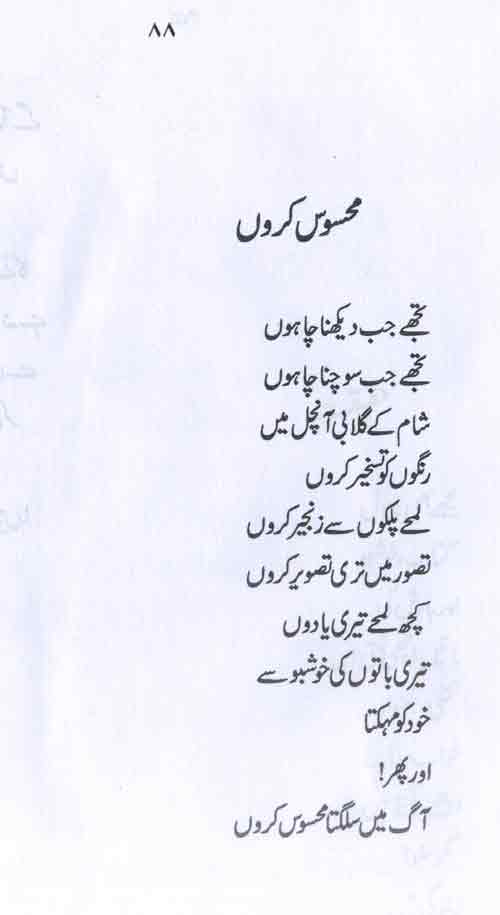 ۸۸
محسوس کروں
تجھے جب دیکھنا چاہوں
تجھے جب سوچنا چاہوں
شام کے گلابی آنچل میں
رنگوں کو تسخیر کروں
لمحے پلکوں سے زنجیر کروں
تصور میں تری تصویر کروں
کچھ لمحے تیری یادوں
تیری باتوں کی خوشبو سے
خود کو مہکتا
اور پھر!
آگ میں سلگتا محسوس کروں